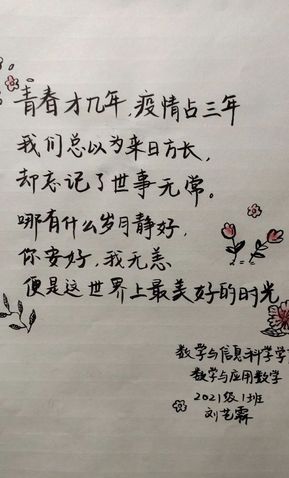 青春才几年,疫情占三年
我们总以为来日方长,
却忘记了世事无常。
哪有什么岁月静好,
你安好,我无恙
便是这世界上最美好的时光
数学与信息科学学
数学与应用数学
2021级1班
刘艺霖